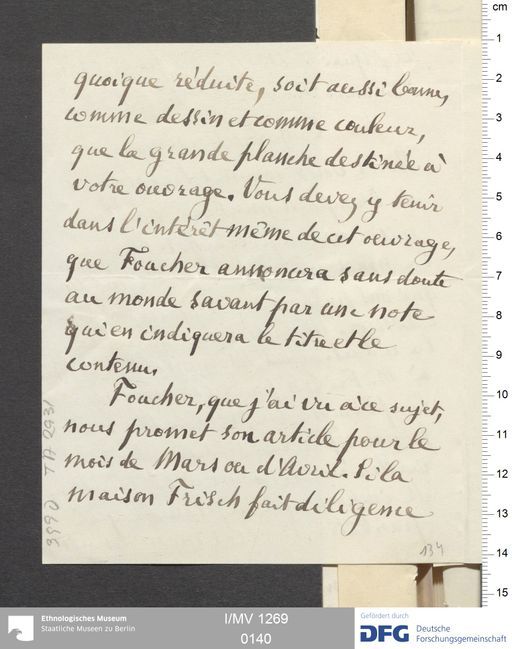 quoique réduite, soit aussi bonne,
comme dessin et comme couleur,
que la grande planche destinée à
votre ouvrage. Vous devez y tenir
dans l'intérêt même de cet ouvrage,
que Foucher annoncera sans doute
au monde savant par une note
qui en indiquera le titre et le
contenu.
Foucher, que j'ai vu à ce sujet,
nous promet son article pour le
mois de Mars ou d'Avril. Si la
maison Frisch fait diligence
3990 TA 2931
134
cm
1
2
3
4
5
6
7
8
9
10
11
12
13
14
15
Ethnologisches Museum
Staatliche Museen zu Berlin
I/MV 1269
0140
Gefördert durch
DFG Deutsche
Forschungsgemeinschaft